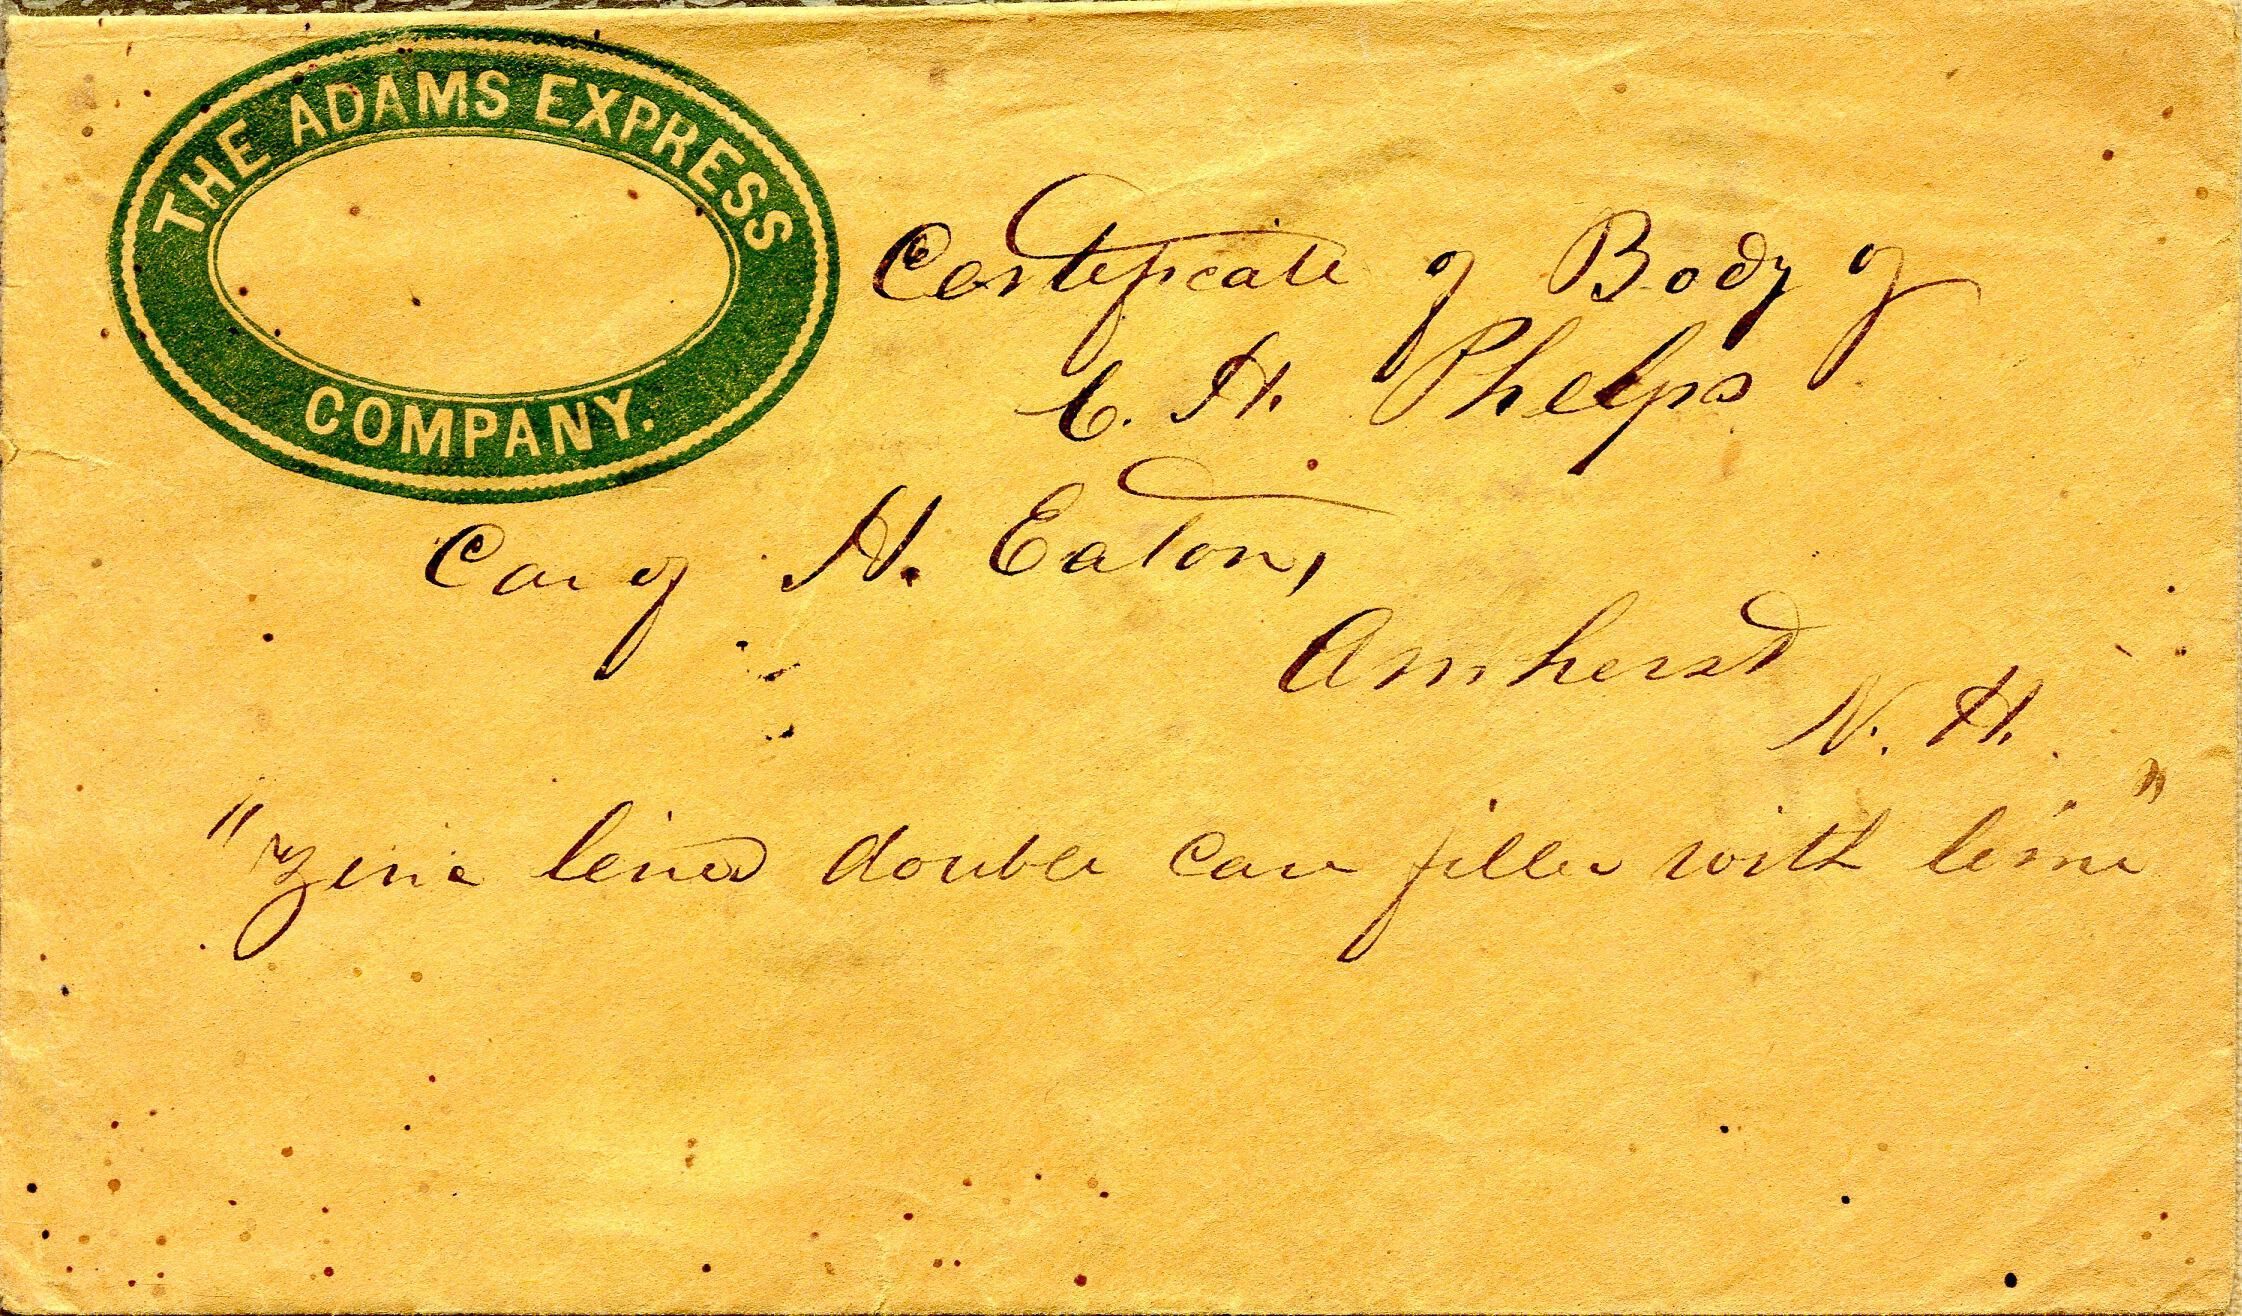 THE ADAMS EXPRESS
COMPANY.
Certificate of Body of
C. H. Phelps
Car of H. Eaton,
Amherst
N. H.
"Zinc lined double case filled with lime"